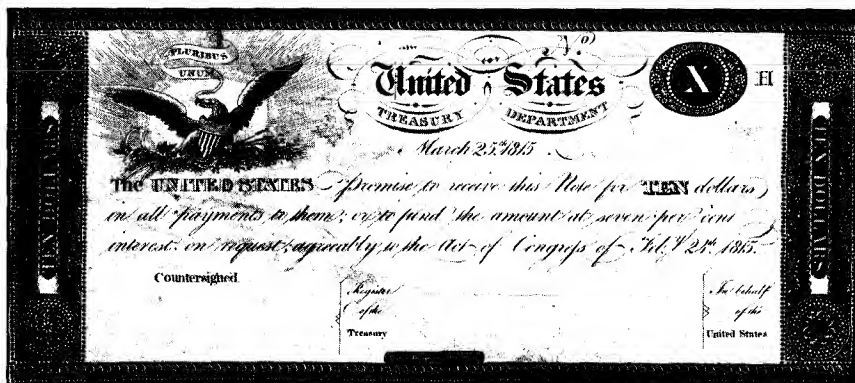 PLURIBUS
UNUM
No
United States
TREASURY DEPARTMENT
X
H
March 25th 1815
The UNITED STATES Promise to receive this Note for TEN dollars
in all payments to them; or to fund the amount at seven per cent
interest, on request, agreeably to the Act of Congress of Feb.y 24th 1815.
Countersigned
Register
of the
Treasury
In behalf
of the
United States
TEN DOLLARS
TEN DOLLARS